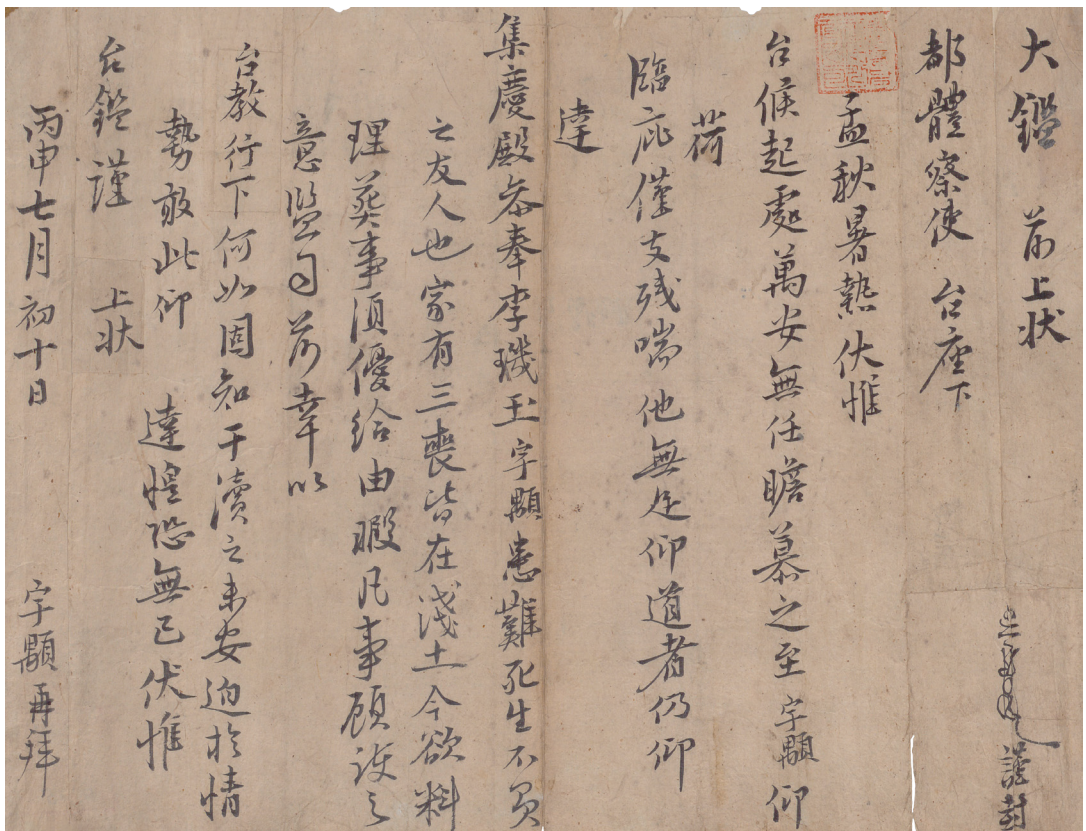 大鑑 前上狀
謹封
都體察使 台座下
孟秋暑熱伏惟
台候起處萬安無任瞻慕之至宇顒仰
荷
臨庇僅支殘喘他無足仰道者仍仰
達
集慶殿參奉李璣玉宇顒患難死生不負
之友人也家有三喪皆在淺土今欲料
理葬事須優給由暇凡事顧護之
意監司前幸以
台教行下何如固知干瀆之未安迫於情
勢敢此仰 達惶恐無已伏惟
台鑑謹 上狀
丙申七月初十日 宇顒再拜